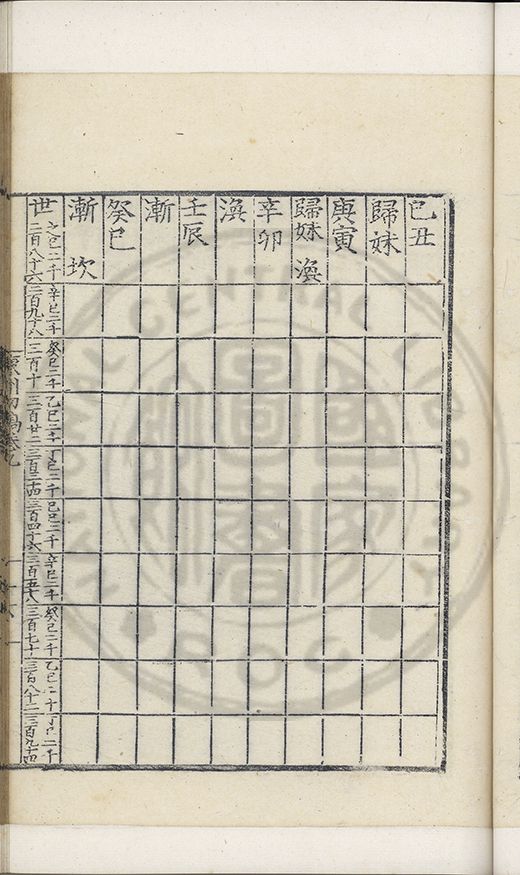 己丑
歸妹
庚寅
歸妹 渙
辛卯
渙
壬辰
漸
癸巳
漸 坎
世 己巳二千二百八十六 辛巳二千二百九十八 癸巳二千三百十 乙巳二千三百廿二 丁巳二千三百三十四 己巳二千三百四十六 辛巳二千三百五十八 癸巳二千三百七十 乙巳二千三百八十二 丁巳二千三百九十四
NATIONAL CENTRAL LIBRARY